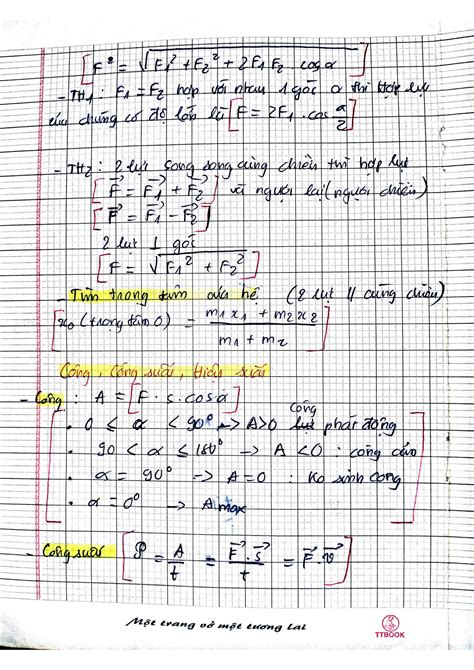 [F² = √F₁² + F₂² + 2F₁F₂ . cosα]
- TH₁ : F₁ = F₂ hợp với nhau 1 góc α thì hợp lực
của chúng có độ lớn là [F = 2F₁ . cos α/2]
- TH₂ : 2 lực song song cùng chiều thì hợp lực
[F⃗ = F₁⃗ + F₂⃗] và người lại (người chiều)
[F⃗ = F₁⃗ - F₂⃗]
2 lực 1 góc
[F = √F₁² + F₂²]
- Tìm trọng tâm của hệ (2 lực // cùng chiều)
[x₀ (trọng tâm O) = (m₁x₁ + m₂x₂)/(m₁ + m₂)]
Công, Công suất, Hiệu suất
- Công : A = [F . s . cosα]
. 0 ≤ α < 90° -> A>0 Công phát động
. 90 < α ≤ 180° -> A < 0 : công cản
. α = 90° -> A = 0 : Ko sinh công
. α = 0° -> Amax
- Công suất [P = A/t = F⃗ . s⃗/t = F⃗ . v⃗]
Một trang vở một tương lai
TTBOOK